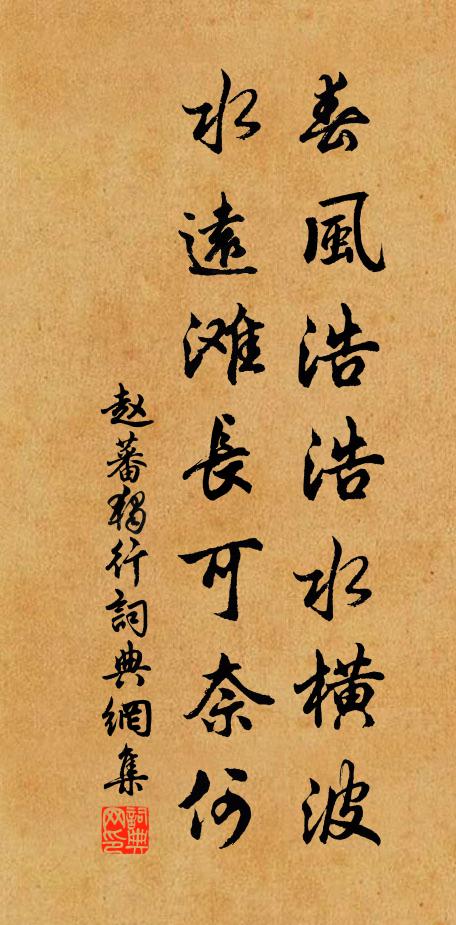 春風浩浩水橫波
水遠滩長可奈何
赵蕃獨行詞典網集
詞典
网印